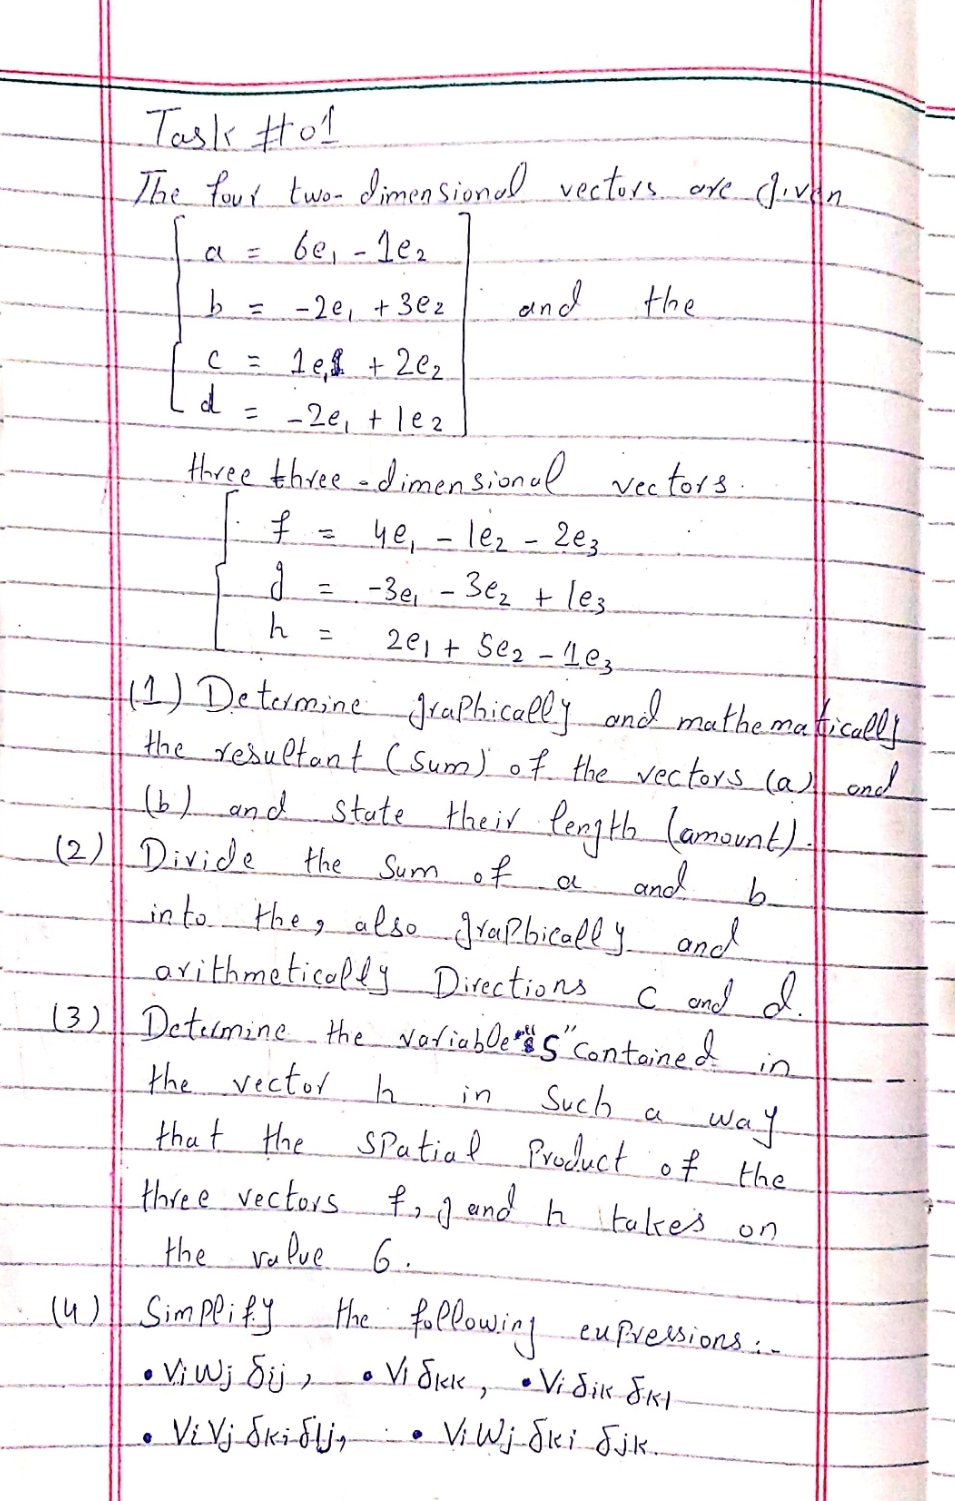 Task #01
The four two-dimensional vectors are given
a = 6e₁ - 1e₂
b = -2e₁ + 3e₂ and the
c = 1e₁ + 2e₂
d = -2e₁ + 1e₂
three three-dimensional vectors.
f = 4e₁ - 1e₂ - 2e₃
g = -3e₁ - 3e₂ + 1e₃
h = 2e₁ + Se₂ - 1e₃
(1) Determine graphically and mathematically
the resultant (sum) of the vectors (a) and
(b) and state their length (amount).
(2) Divide the sum of a and b
into the, also graphically and
arithmetically Directions c and d.
(3) Determine the variable "S" contained in
the vector h in such a way
that the spatial Product of the
three vectors f, g and h takes on
the value 6.
(4) Simplify the following expressions:-
• ViWj δij, • Vi δKK, • Vi δiK δKl
• ViVj δKi δlj, • ViWj δKi δjK.